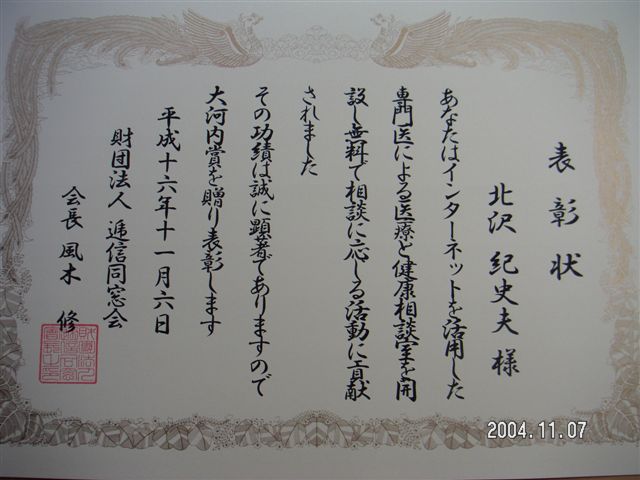 表彰状
北沢 紀史夫 様
あなたはインターネットを活用した
専門医による医療と健康相談室を開
設し無料で相談に応じる活動に貢献
されました
その功績は誠に顕著でありますので
大河内賞を贈り表彰します
平成十六年十一月六日
財団法人 逓信同窓会
会長 風木 修
2004.11.07